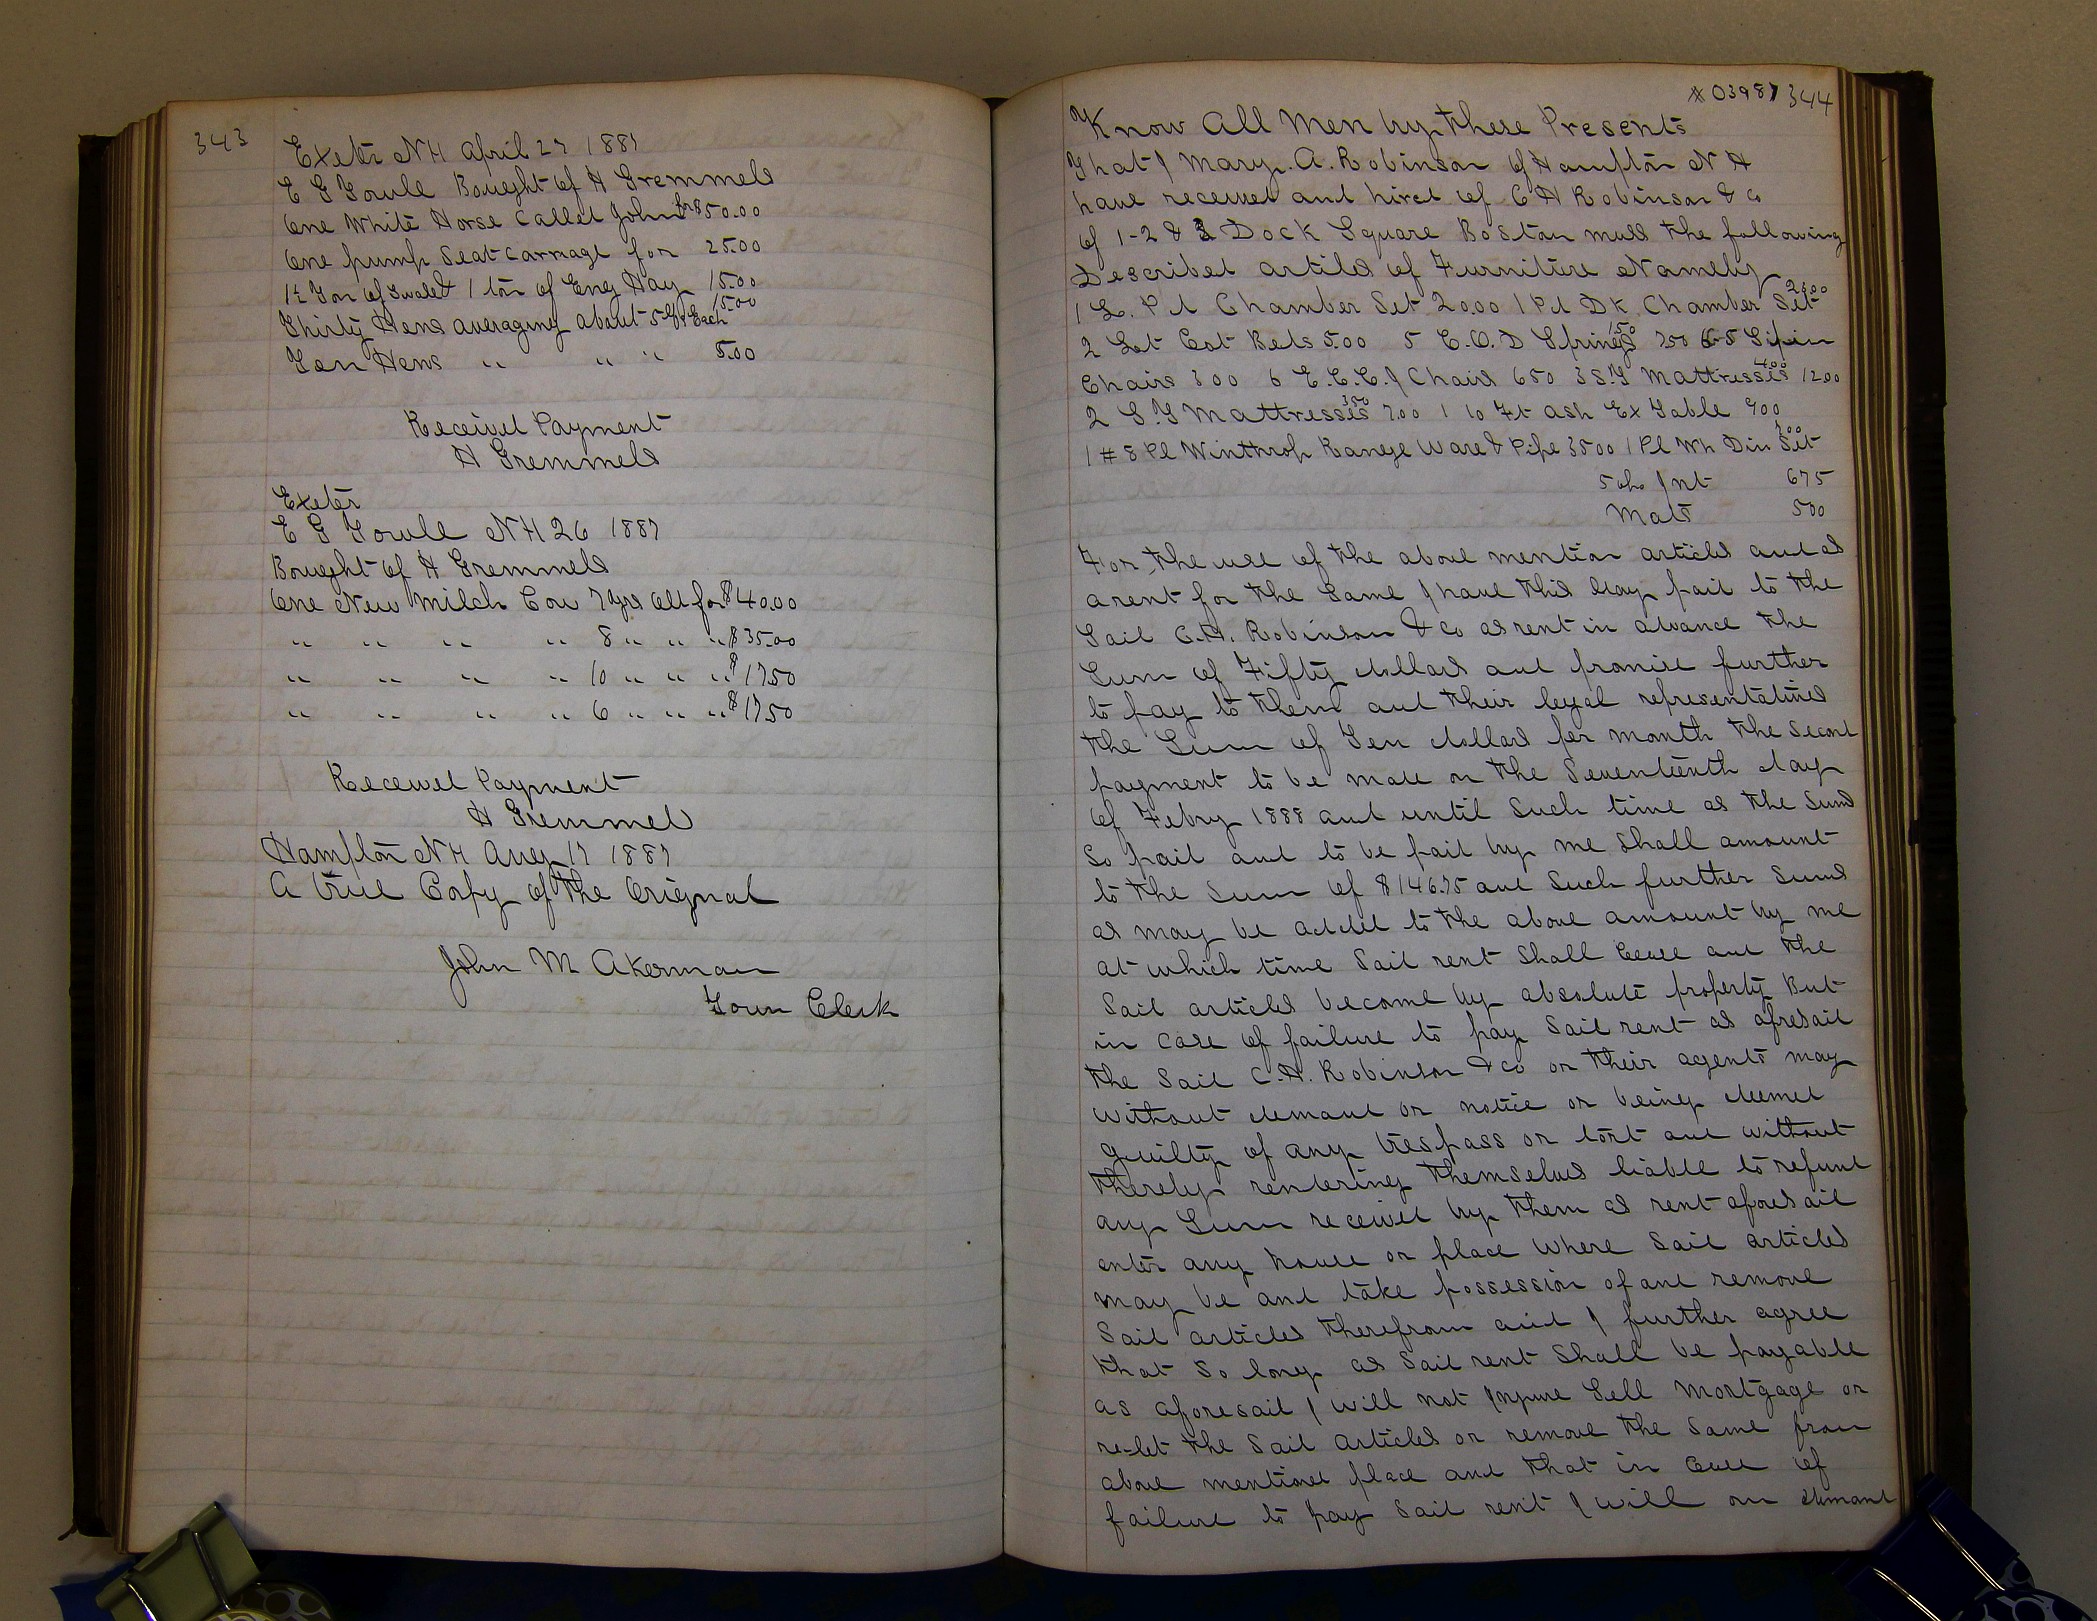 343
Exeter NH April 27 1887
E G Towle Bought of H Gremmels
One White Horse Called John for $50.00
One pump Seat Carriage for 25.00
1½ Ton of Swale & 1 ton of Eng Hay 15.00
Thirty Hens averaging about 50 cts Each 15.00
Ten Hens " " " 5.00
Received Payment
H Gremmels
Exeter
E G Towle NH 26 1887
Bought of H Gremmels
One New Milch Cow 7 yrs old for $40.00
" " " " 8 " " " $35.00
" " " " 10 " " " $17.50
" " " " 6 " " " $17.50
Received Payment
H Gremmel
Hampton NH Aug 17 1887
A true Copy of the Orignal
John M Akerman
Town Clerk
# 03987 344
Know All Men by these Presents
That I Mary. A. Robinson of Hampton N H
have received and hired of C H Robinson & Co
of 1-2 & 3 Dock Square Boston mass the following
Described artiles of Furniture Namely
1 L. Pd Chamber Set 20.00 1 Pd Dk Chamber Set 20.00
2 Cot Beds 5.00 5 C.O.D Springs 1.50 7.50
Chairs 3 00 6 Chairs 6 50 3 S.T Mattresses 4.00 12.00
2 S.T Mattresses 3.50 7.00 1 10 Ft ash Ex Table 9 00
1 # 8 Pl Winthrop Range Ware & Pipe 35 00 1 Pl Wh Din Set
5 % Int 6 75
Mats 5 00
For the use of the above mention articles and as
a rent for the Same I have this day paid to the
Said C.H. Robinson & Co as rent in advance the
Sum of Fifty dollars and promise further
to pay to them and their legal representatives
the Sum of Ten dollars per month the Second
payment to be made on the Seventeenth day
of Febry 1888 and until Such time as the Sums
So paid and to be paid by me Shall amount
to the Sum of $146.75 and Such further Sums
as may be added to the above amount by me
at which time Said rent Shall Cease and the
Said articles become by absolute property But
in Case of failure to pay Said rent as afresaid
the Said C.H. Robinson & Co or their agents may
without demand or notice or being deemed
guilty of any trespass or tort and without
thereby rendering themselves liable to refund
any Sum received by them as rent aforesaid
enter any house or place where Said articles
may be and take possession of and remove
Said articles therefrom and I further agree
that So long as Said rent Shall be payable
as aforesaid I will not Injure Sell Mortgage or
re-let the Said articles or remove the Same from
above mentioned place and that in Case of
failure to pay Said rent I will on demand